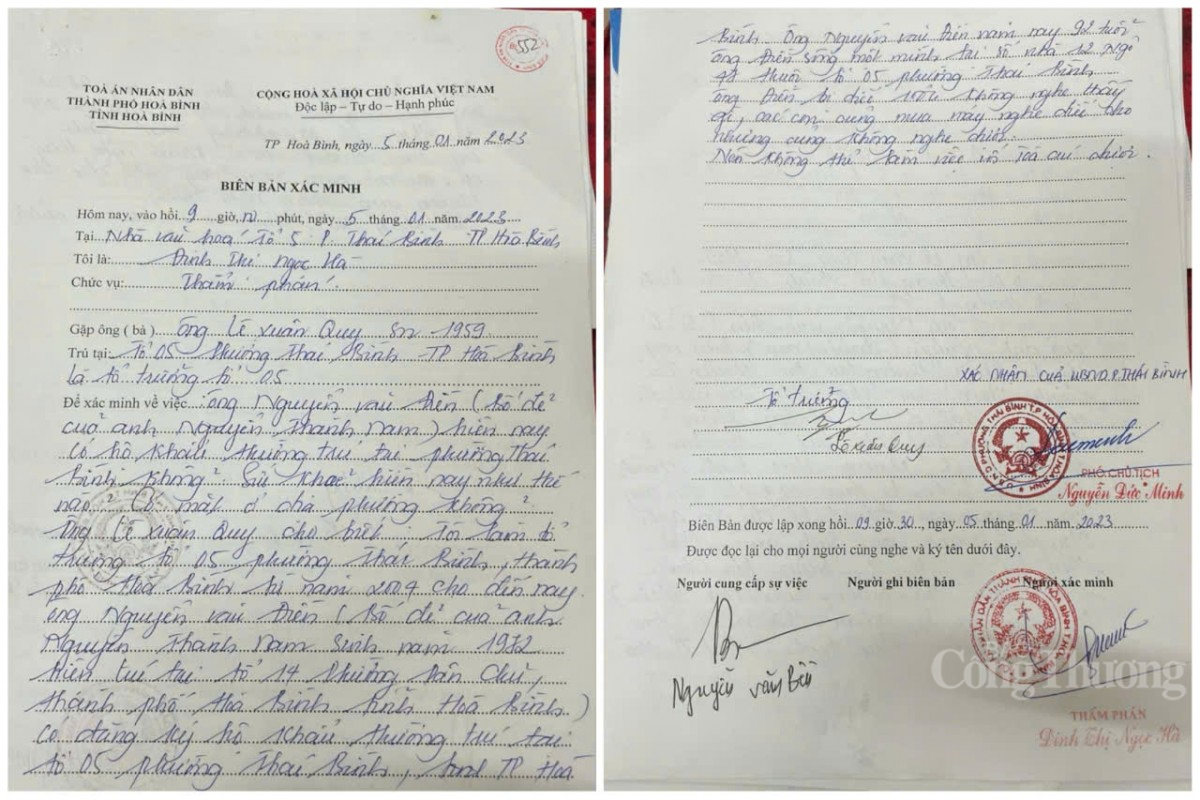 552
TOÀ ÁN NHÂN DÂN
THÀNH PHỐ HOÀ BÌNH
TỈNH HOÀ BÌNH
CỘNG HOÀ XÃ HỘI CHỦ NGHĨA VIỆT NAM
Độc lập – Tự do – Hạnh phúc
TP Hoà Bình, ngày 5 tháng 01 năm 2023
BIÊN BẢN XÁC MINH
Hôm nay, vào hồi 9 giờ, 00 phút, ngày 5 tháng 01 năm 2023
Tại Nhà văn hoá Tổ 5 P. Thái Bình TP Hoà Bình
Tôi là: Đinh Thị Ngọc Hà
Chức vụ: Thẩm phán.
Gặp ông ( bà ) ông Lê Xuân Quy sn 1959
Trú tại: Tổ 05 Phường Thái Bình TP Hoà Bình
là tổ trưởng tổ 05
Để xác minh về việc ông Nguyễn văn Điến ( bố đẻ
của anh Nguyễn Thành Nam ) hiện nay
có hộ khẩu thường trú tại phường Thái
Bình không? Sức khoẻ hiện nay như thế
nào? Có mặt ở địa phương không?
Ông Lê Xuân Quy cho biết: Tôi làm tổ
trưởng tổ 05 phường Thái Bình, thành
phố Hoà Bình từ năm 2004 cho đến nay.
ông Nguyễn văn Điến ( bố đẻ của anh
Nguyễn Thành Nam sinh năm 1972
hiện trú tại tổ 14 Phường Dân Chủ,
thành phố Hoà Bình tỉnh Hoà Bình )
có đăng ký hộ khẩu thường trú tại
tổ 05 phường Thái Bình, TP Hoà
Bình. Ông Nguyễn văn Điến năm nay 92 tuổi
ông Điến sống một mình tại số nhà 12 Ngõ
thuộc tổ 05 phường Thái Bình
ông Điến bị điếc 100% không nghe thấy
gì, các con cũng mua máy nghe điếc cho
nhưng cũng không nghe được.
Nên không thể làm việc với Toà án được.
XÁC NHẬN CỦA UBND P. THÁI BÌNH
Tổ trưởng
Lê Xuân Quy
PHÓ CHỦ TỊCH
Nguyễn Đức Minh
Biên Bản được lập xong hồi 09 giờ 30, ngày 05 tháng 01 năm 2023
Được đọc lại cho mọi người cùng nghe và ký tên dưới đây.
Người cung cấp sự việc Người ghi biên bản Người xác minh
Nguyễn văn
CôngThương
THẨM PHÁN
Đinh Thị Ngọc Hà